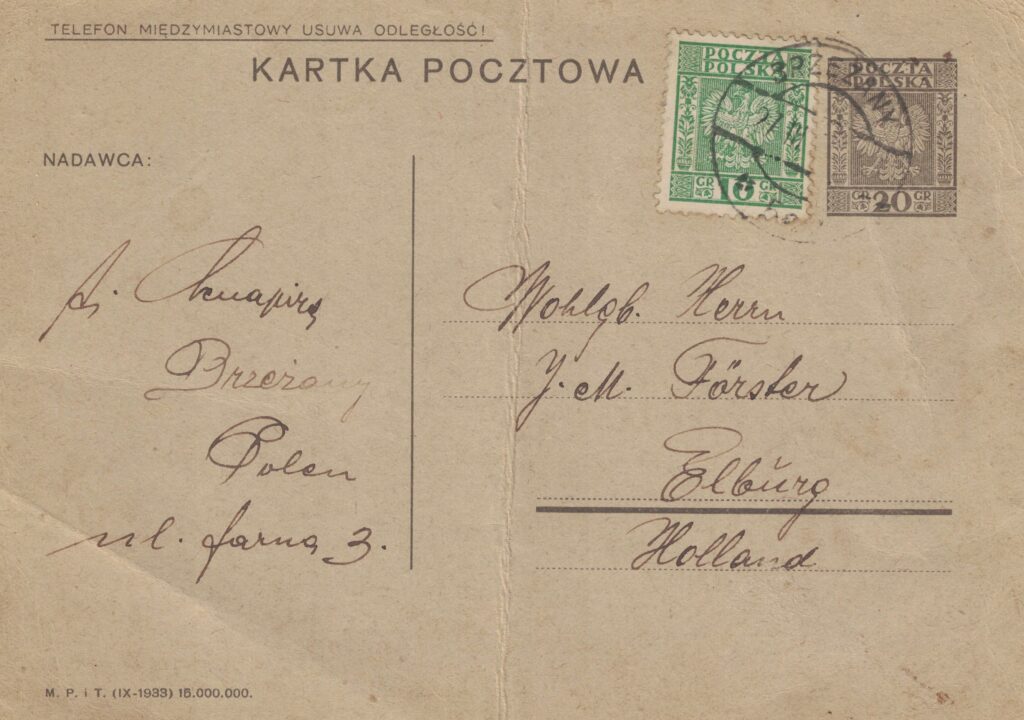 TELEFON MIĘDZYMIASTOWY USUWA ODLEGŁOŚĆ!
KARTKA POCZTOWA
POCZTA
POLSKA
GR 10 GR
POCZTA
POLSKA
GR 20 GR
BRZEŻANY
NADAWCA:
Brzeżany
Polen
ul. farna 3.
Wohlgb. Herrn
J. M. Förster
Elbŭrg
Holland
M. P. i T. (IX-1933) 15.000.000.